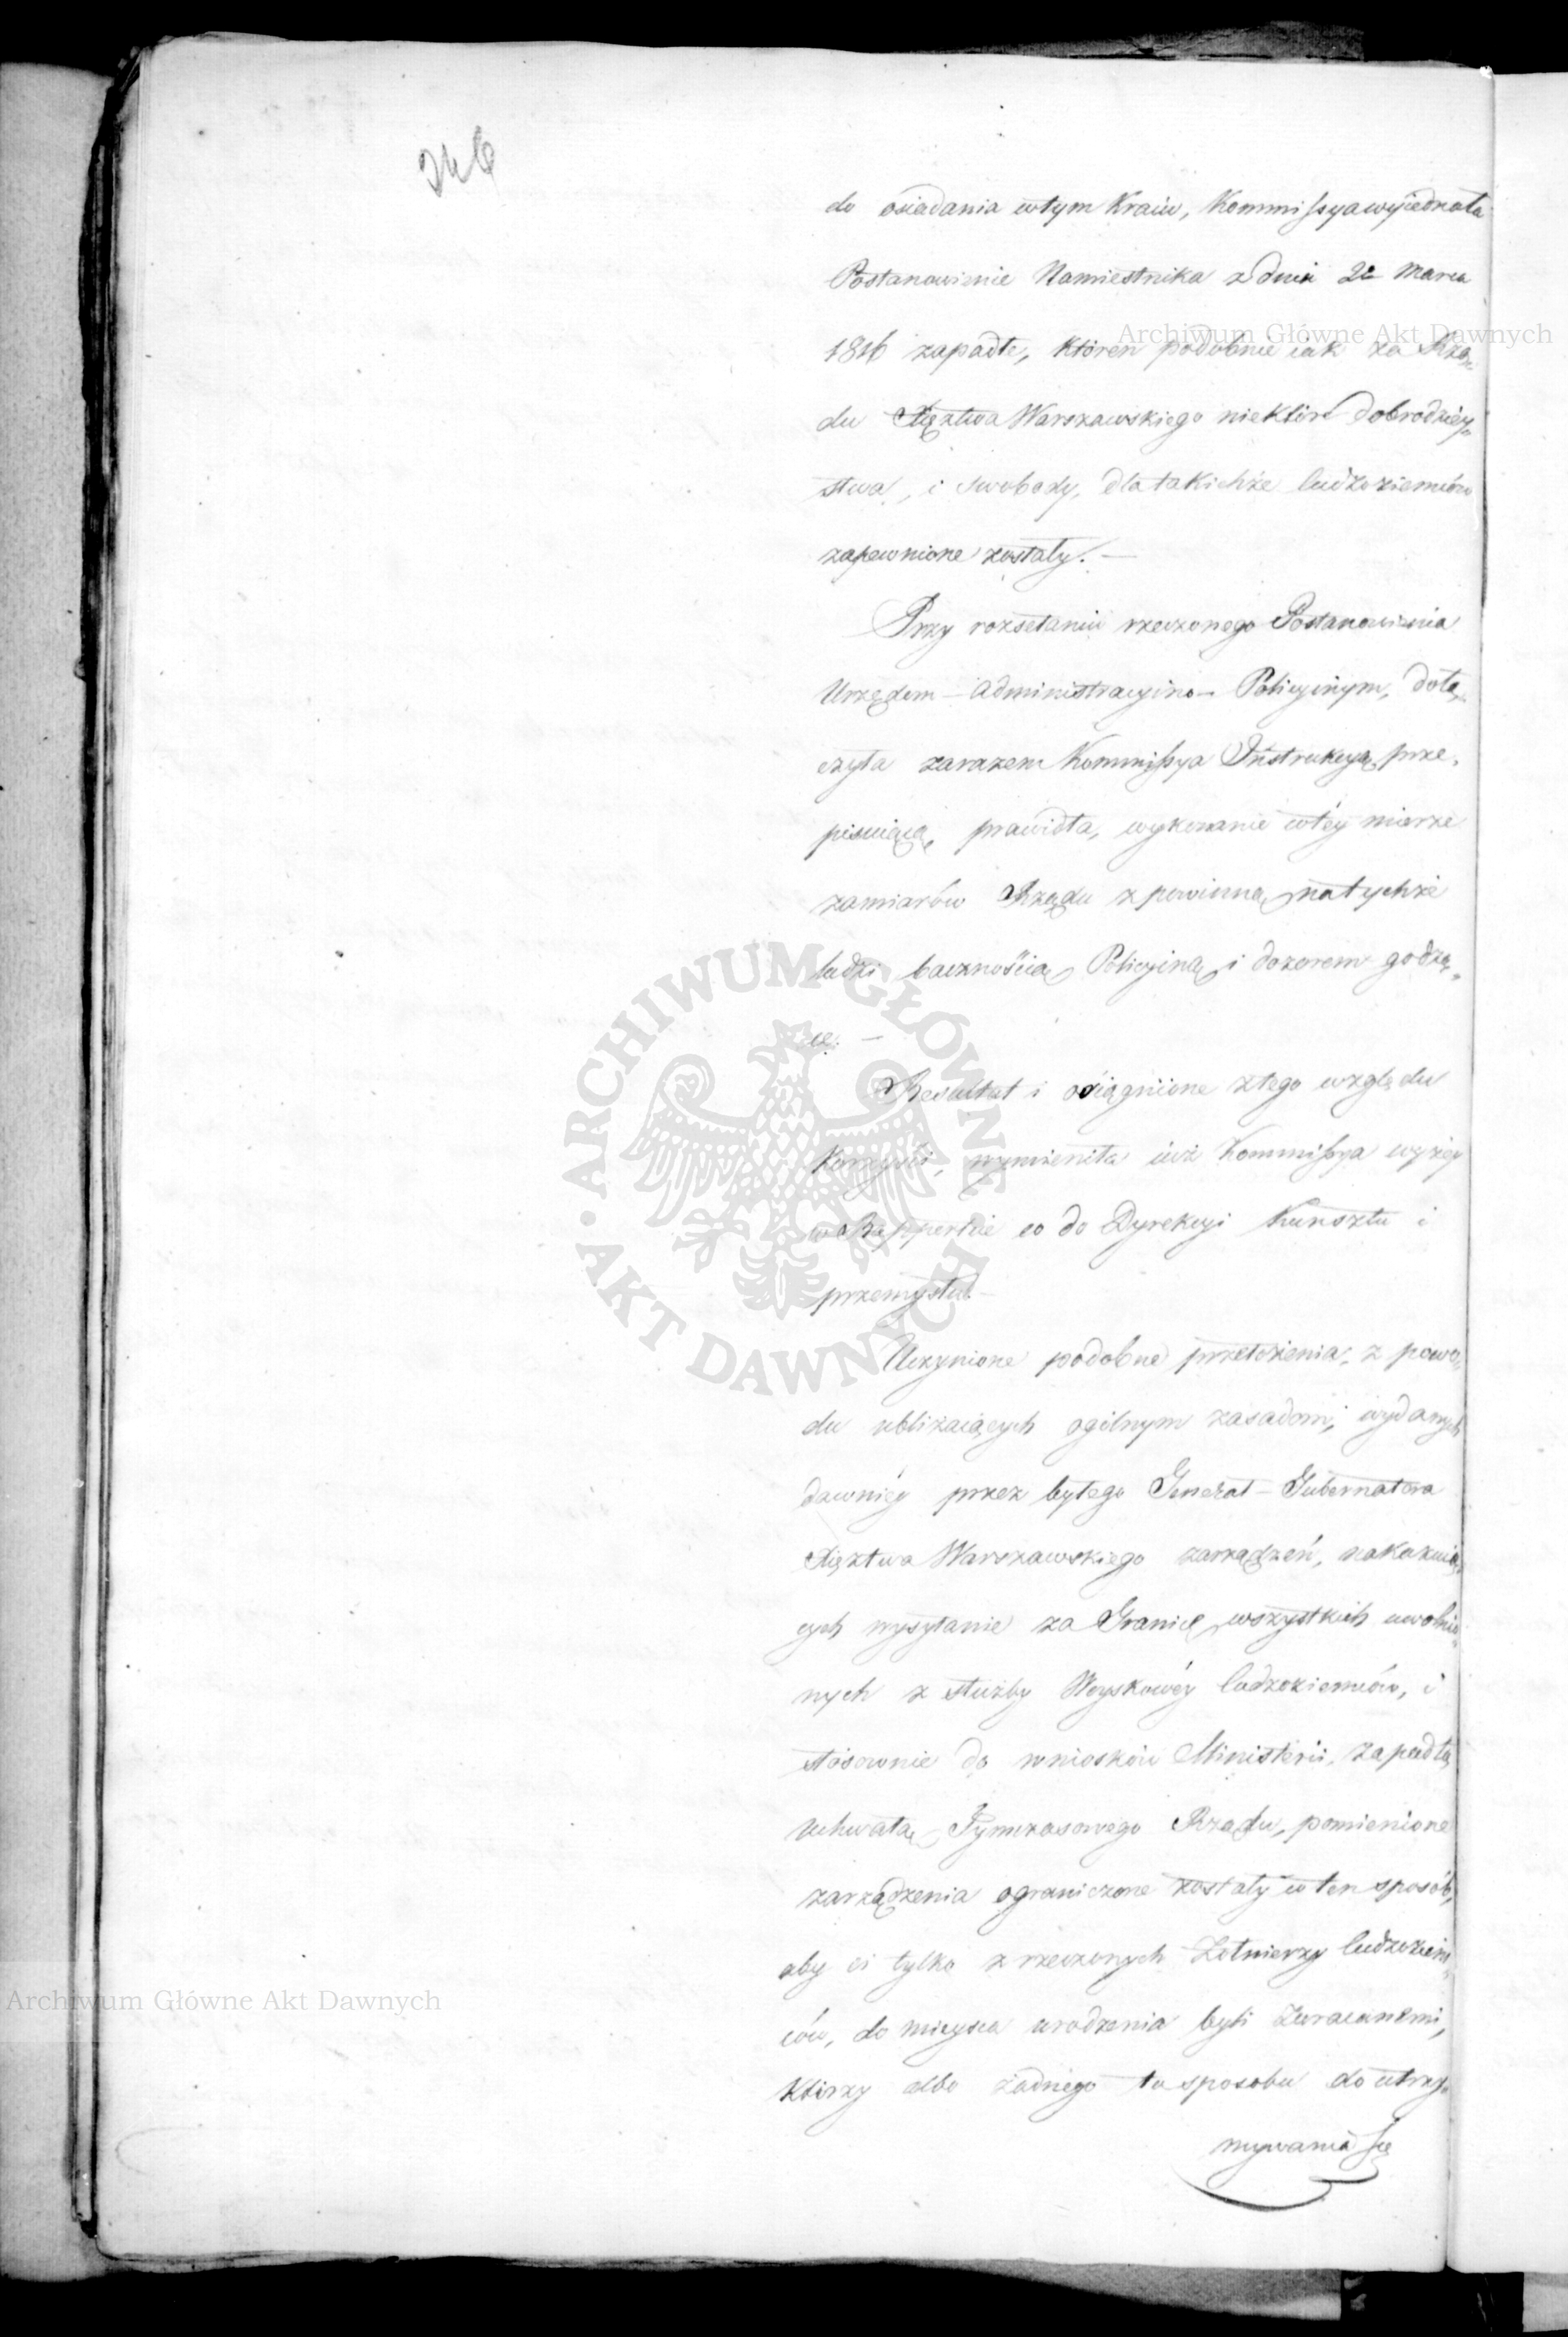 246
do osiadania wtym Kraiu, Kommissya wyiednała
Postanowienie Namiestnika z dnia 2e Marca
1816 zapadłe, którem podobnie iak za Rzą„
du Xięztwa Warszawskiego niektóre dobrodziey„
stwa, i swobody, dla takichże ludzoziemców
zapewnione zostały. —
Przy rozsełaniu rzeczonego Postanowienia
Urzędom – Administracyino – Policyinym, dołą„
czyła zarazem Kommissya Instrukcyą, prze„
pisuiącą, prawidła, wykonanie wtéy mierze
zamiarów Rządu z powinną, na tychże
ludzi bacznością, Policyiną, i dozorem godzą„
ce. —
Resultat i osiągnione z tego względu
korzyści, wymieniła iuż Kommissya wyżey
w Rapporcie co do Dyrekcyi Kunsztu i
przemysłu. —
Uczynione podobne przełożenia, z powo„
du ubliżaiących ogólnym zasadom, wydanych
dawniéy przez byłego Generał – Gubernatora
Xięztwa Warszawskiego zarządzeń, nakazuią„
cych wysyłanie za Granicę, wszystkich uwolnio„
nych z służby Woyskowéy ludzoziemców, i
stósownie do wniosków Ministerii, zapadłą
uchwałą, Tymczasowego Rządu, pomienione
zarządzenia ograniczone zostały w ten sposób,
aby ci tylko z rzeczonych Żołnierzy ludzoziem„
ców, do mieysca urodzenia byli zwracanemi,
Którzy albo żadnego tu sposobu do utrzy„
mywania się
Archiwum Główne Akt Dawnych
Archiwum Główne Akt Dawnych
ARCHIWUM GŁÓWNE AKT DAWNYCH